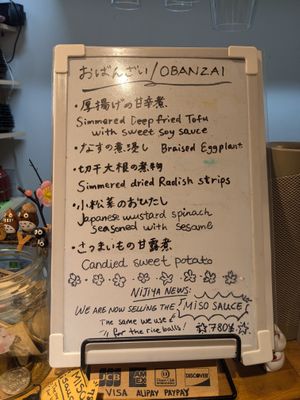 おばんざい/OBANZAI
・厚揚げの甘辛煮
Simmered Deep fried Tofu
with sweet soy sauce
・なすの煮浸し Braised Eggplant
・切干大根の煮物
Simmered dried Radish strips
・小松菜のおひたし
Japanese mustard spinach
seasoned with sesame
・さつまいもの甘露煮
Candied sweet potato
NIJIYA NEWS:
WE ARE NOW SELLING THE MISO SAUCE
The same we use
for the rice balls! ☆780¥☆
JCB AMEX DISCOVER
VISA ALIPAY PAYPAY